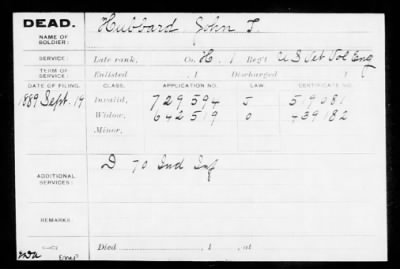 DEAD. Hubbard John T.
NAME OF SOLDIER:
SERVICE: Late rank, Co. H. 1 Reg't U S Vet Vol Eng
TERM OF SERVICE: Enlisted , 1 Discharged 1
DATE OF FILING. CLASS. APPLICATION NO. LAW. CERTIFICATE NO.
1889 Sept. 19 Invalid, 729594 J 519081
Widow, 642519 O 439182
Minor,
ADDITIONAL SERVICES: D 70 Ind Inf
REMARKS:
Died , 1 , at